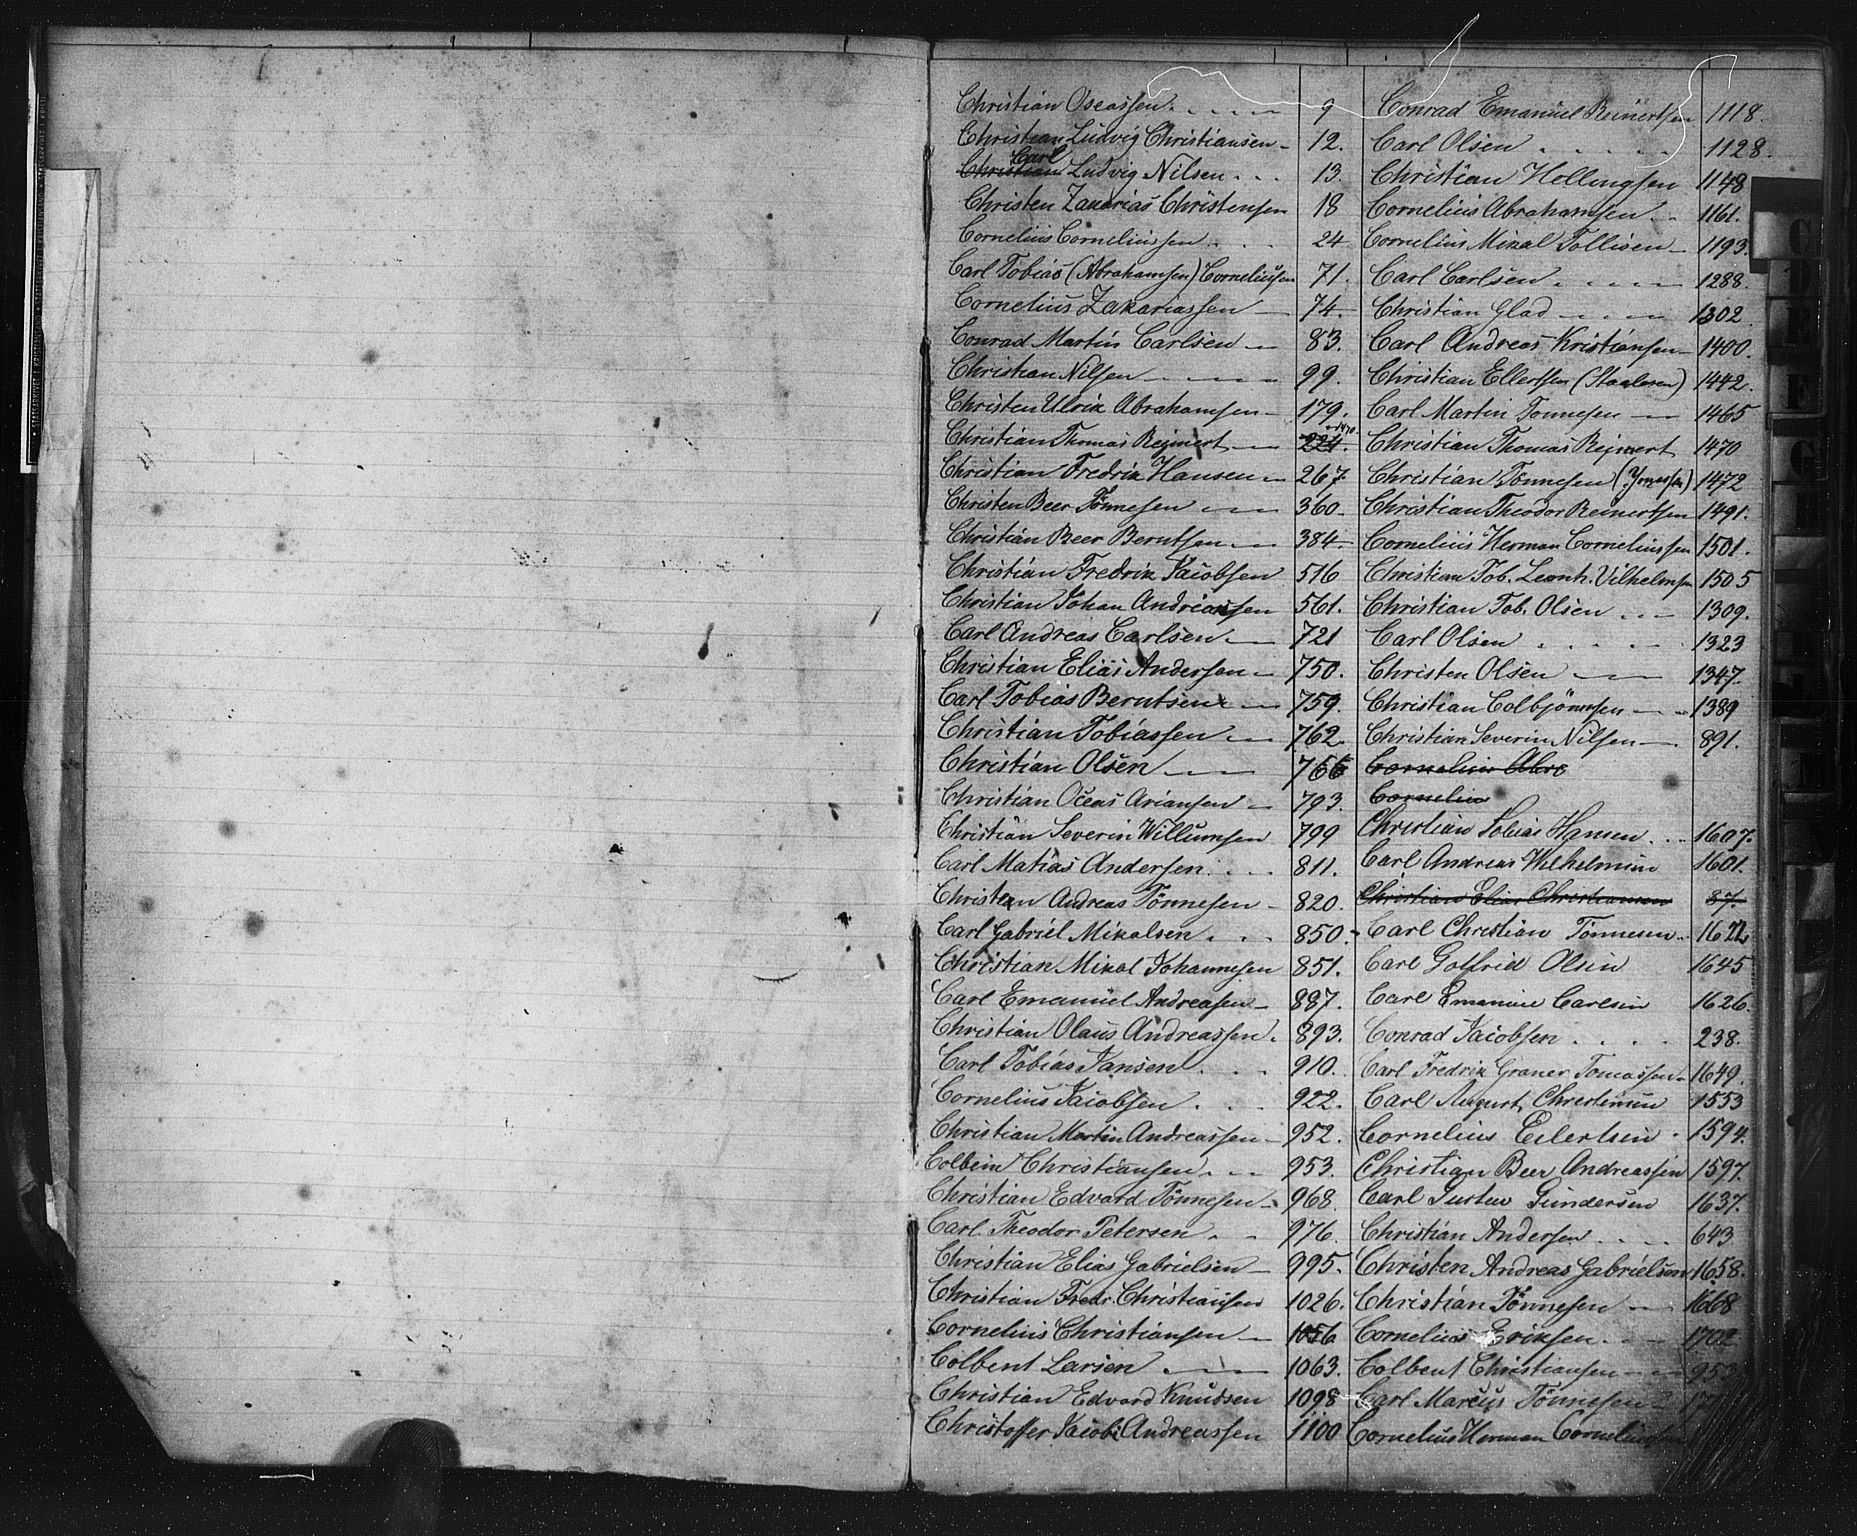 Christian Oseassen 9
Christian Ludvig Christiansen 12.
Carl
Christian Ludvig Nilsen 13.
Christen Zakarias Christensen 18
Cornelius Corneliussen 24
Carl Tobias (Abrahamsen) Corneliussen 71.
Cornelius Zakariassen 74.
Conrad Martin Carlsen 83.
Christian Nilsen 99.
Christen Ulrik Abrahamsen 179.
Christian Thomas Rejnert 224. 1470
Christian Fredrik Hansen 267.
Christen Beer Tönnesen 360.
Christian Beer Berntsen 384
Christian Fredrik Jacobsen 516
Christian Johan Andreassen 561.
Carl Andreas Carlsen 721
Christian Elias Andersen 750.
Carl Tobias Berntsen 759.
Christian Tobiassen 762.
Christian Olsen 766
Christian Oceas Ariansen 793.
Christian Severin Willumsen 799
Carl Matias Andersen 811.
Christen Andreas Tönnesen 820.
Carl Gabriel Mikalsen 850.
Christian Mikal Johannesen 851.
Carl Emanuel Andreasen 887.
Christian Olaus Andreassen. 893.
Carl Tobias Jansen 910.
Cornelius Jacobsen 922.
Christian Martin Andreassen 952.
Colbein Christiansen 953.
Christian Edvard Tönnesen 968.
Carl Theodor Petersen 976.
Christian Elias Gabrielsen 995.
Christian Fredr. Christiansen 1026.
Cornelius Christiansen 1056
Colbent Larsen 1063.
Christian Edvard Knudsen 1098
Christoffer Jacob Andreassen 1100
Conrad Emanuel Reinertsen 1118.
Carl Olsen 1128.
Christian Hollingsen 1148
Cornelius Abrahamsen 1161.
Cornelius Mikal Tollisen 1193.
Carl Carlsen 1288.
Christian Glad 1302
Carl Andreas Kristiansen 1400.
Christian Ellertsen (Staalesen) 1442.
Carl Martin Tonnesen 1465
Christian Thomas Rejnert 1470
Christian Tönnesen 1472
Christian Theodor Reinertsen 1491.
Cornelius Herman Corneliussen 1501.
Christian Tob. Leonh. Vilhelmsen 1505
Christian Tob. Olsen 1309.
Carl Olsen 1323
Christen Olsen 1347.
Christian Colbjönnsen 1389
Christian Severin Nilsen 891.
Cornelius Abra
Cornelius
Christian Tobias Hansen 1607.
Carl Andreas Wilhelmsen 1601.
Christian Elias Christiansen 87.
Carl Christian Tönnesen 1622
Carl Gotfried Olsen 1645
Carl Emanuel Carlsen 1626.
Conrad Jacobsen 238.
Carl Fredrik Graner Tomassen 1649.
Carl August Christensen 1553
Cornelius Eilertsen 1594.
Christian Beer Andreassen 1597.
Carl Gustav Gundersen 1637.
Christian Andersen 643
Christen Andreas Gabrielsen 1658.
Christian Tönnesen 1668
Cornelius Eriksen 1702
Colbent Christiansen 953
Carl Marcus Tönnesen
Cornelius Herman Corneliussen
C
D
E
F
G
H